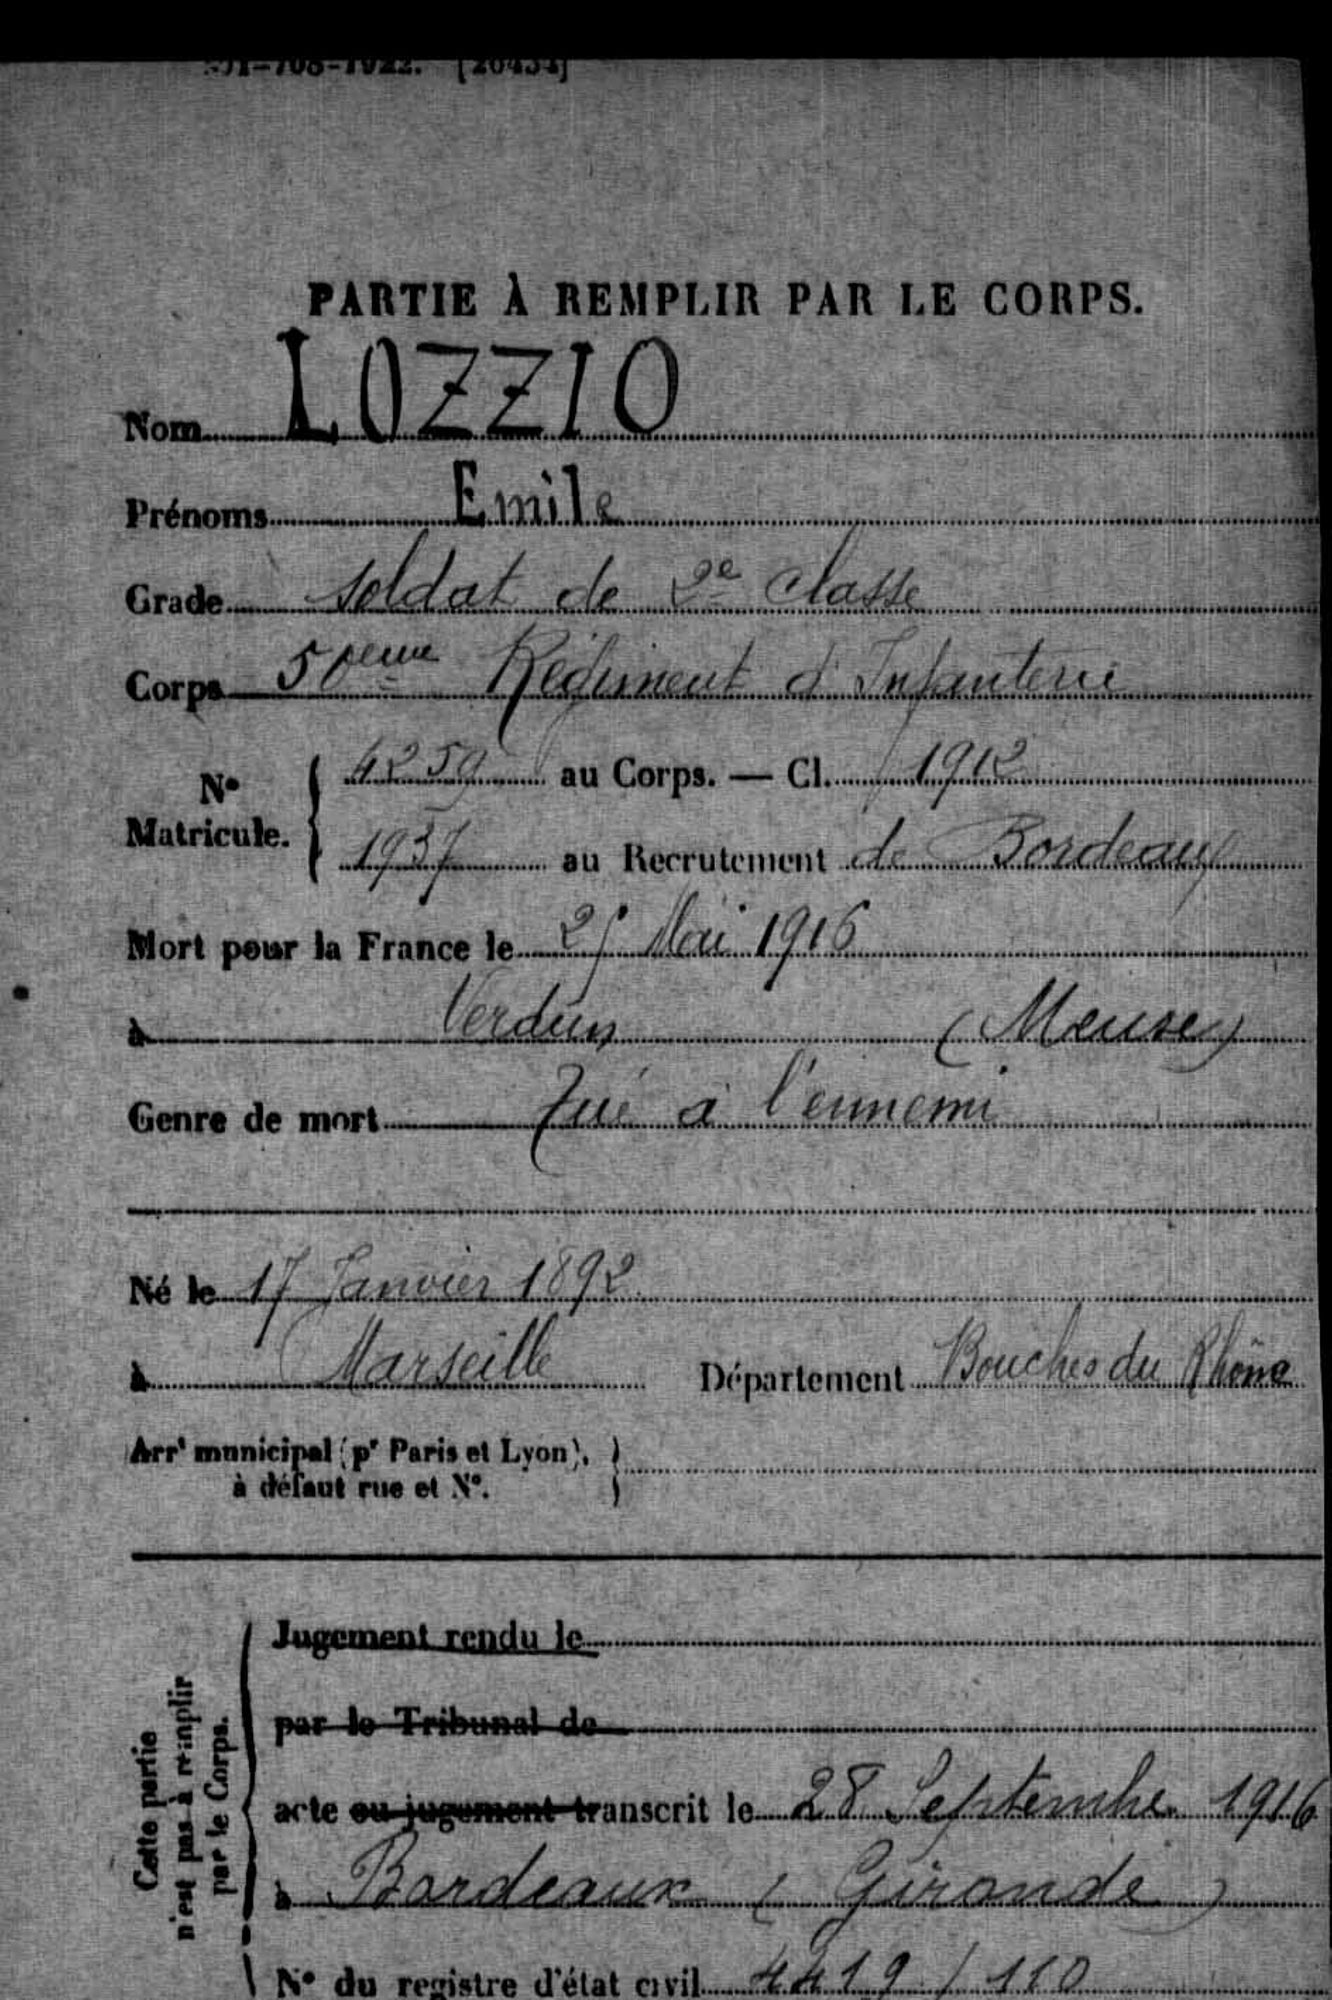 -708-1922. [26434]
PARTIE À REMPLIR PAR LE CORPS.
Nom LOZZIO
Prénoms Emile
Grade soldat de 2e classe
Corps 50eme Régiment d'Infanterie
N° Matricule. { 4259 au Corps. — Cl. 1912
1937 au Recrutement de Bordeaux
Mort pour la France le 25 Mai 1916
à Verdun (Meuse)
Genre de mort Tué à l'ennemi
Né le 17 Janvier 1892
à Marseille Département Bouches du Rhône
Arrt municipal (pr Paris et Lyon),
à défaut rue et N°.
Cette partie
n'est pas à remplir
par le Corps.
Jugement rendu le
par le Tribunal de
acte ou jugement transcrit le 28 Septembre 1916
à Bordeaux (Gironde)
N° du registre d'état civil 4419 / 110